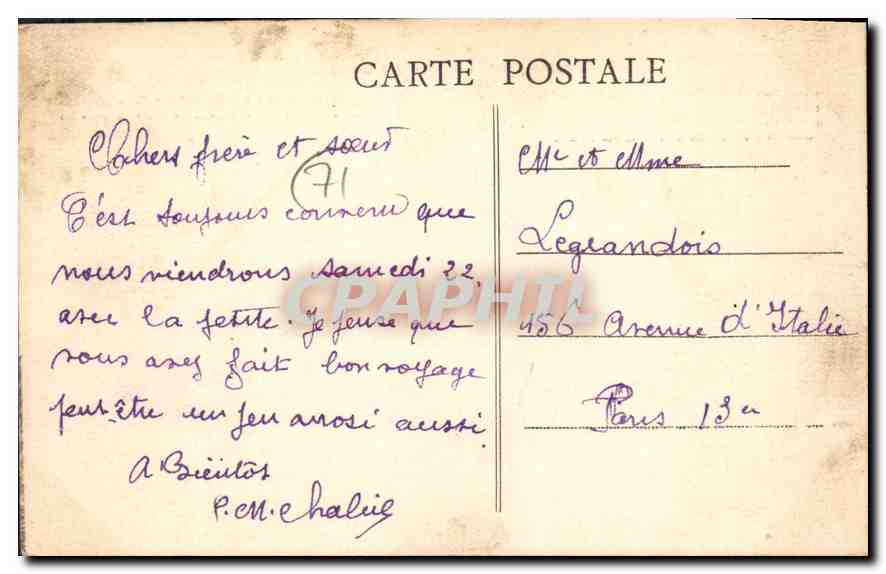 CARTE POSTALE
Chers frère et sœur
71
C'est toujours convenu que
nous viendrons samedi 22
avec la petite. Je pense que
vous avez fait bon voyage
peut-être un peu arrosé aussi.
A Bientôt
P. M.
Mr et Mme
Legrandois
156 Avenue d'Italie
Paris 13e
CPAPHIL